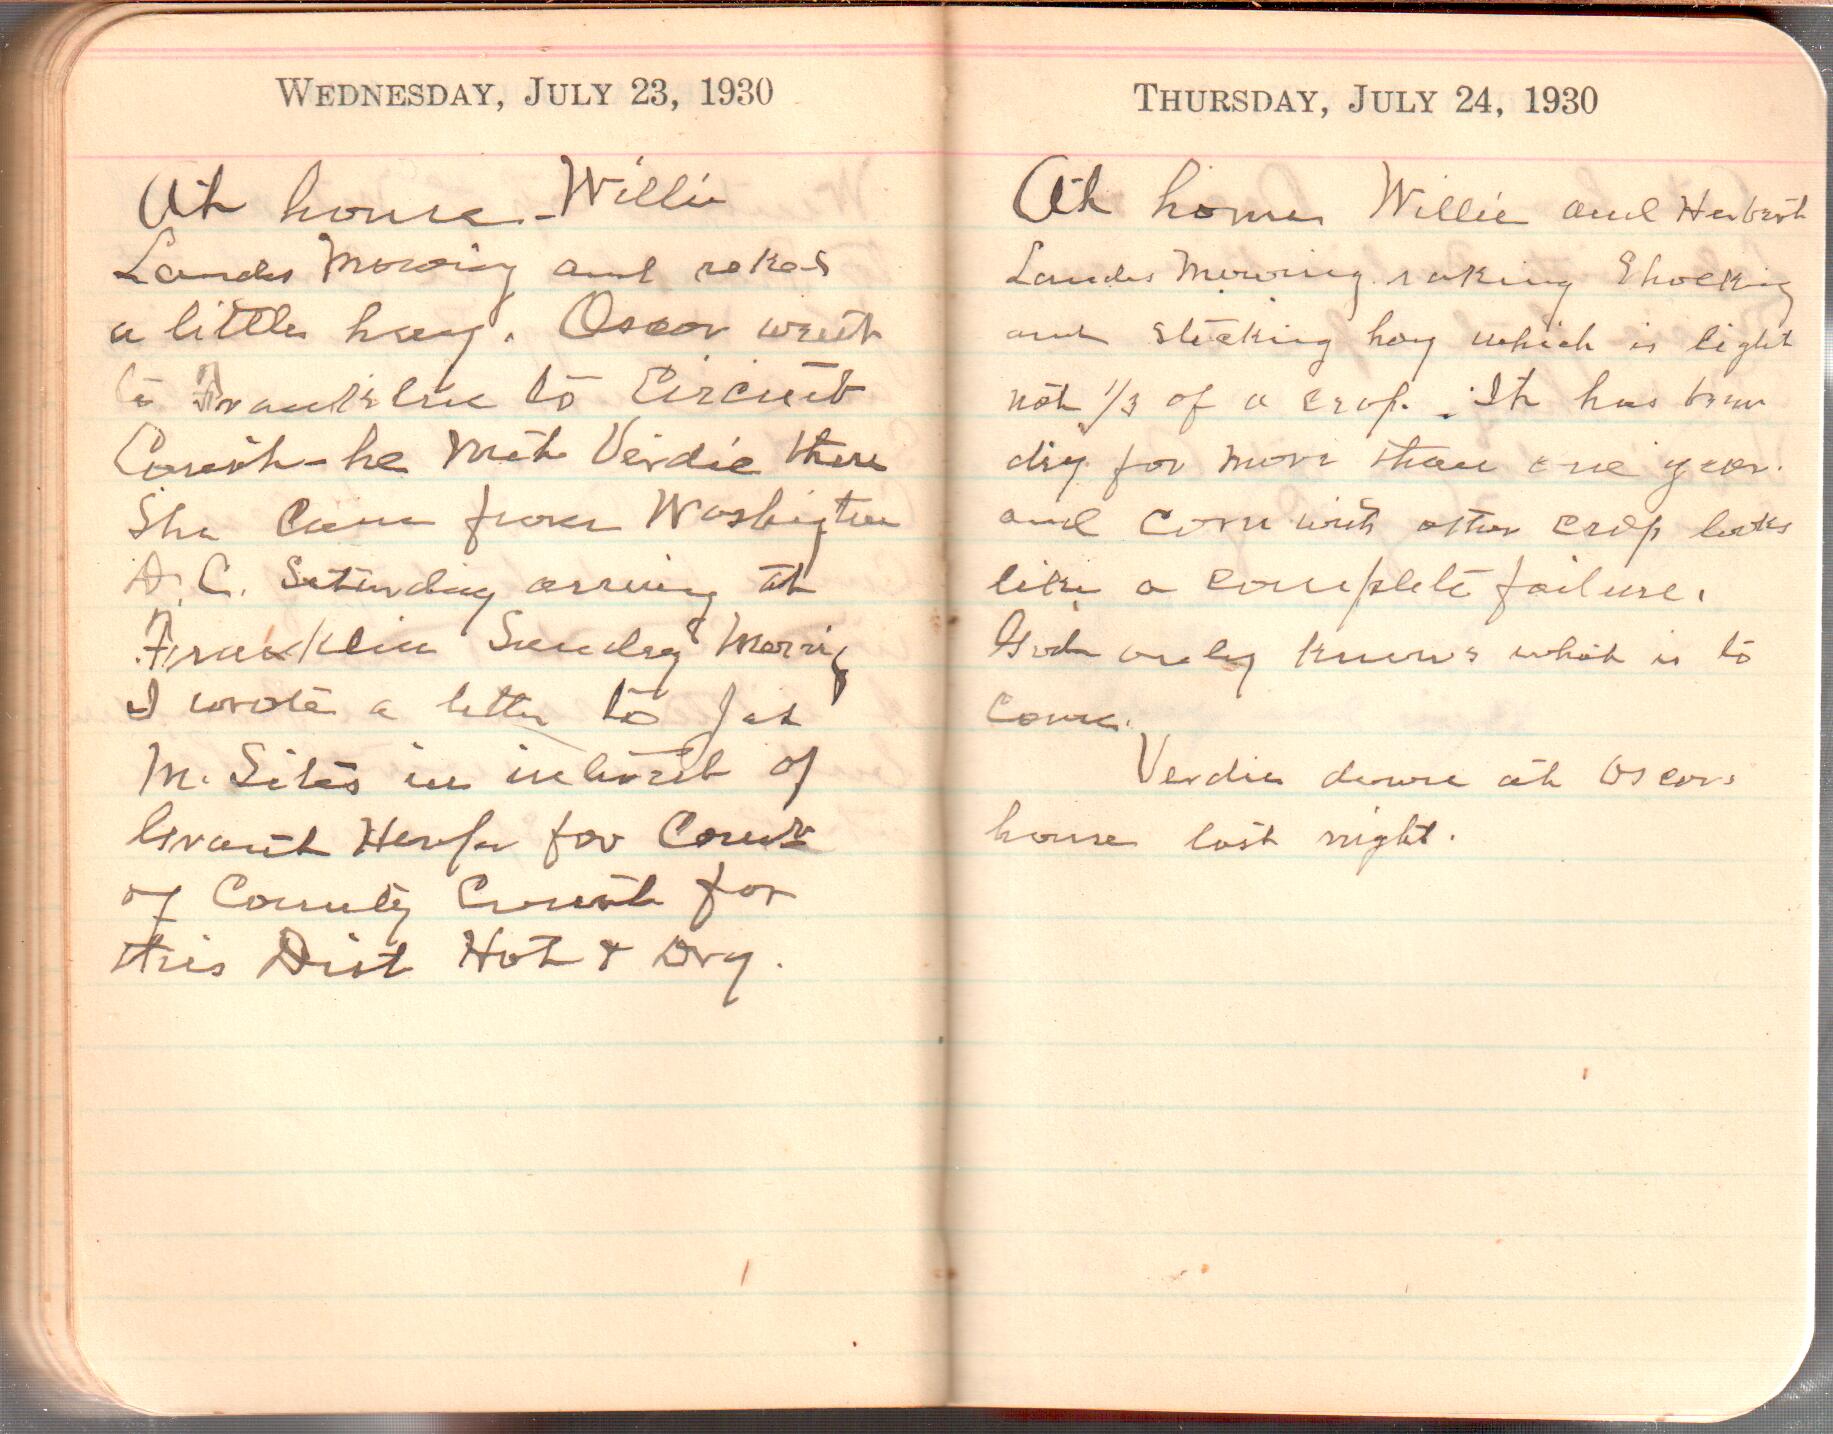 WEDNESDAY, JULY 23, 1930
At home - Willie
Landes Mowing and raked
a little hay. Oscar went
to Franklin to Circuit
Court - he met Verdie there
She came from Washington
D.C. Saturday arriving at
Franklin Sunday Morning
I wrote a letter to
M. Sites in interest of
Grant for
of County Court for
this Dist Hot & Dry.
THURSDAY, JULY 24, 1930
At home Willie and Herbert
Landes Mowing raking Shocking
and stacking hay which is light
not 1/3 of a crop. It has been
dry for more than one year.
and Corn with other crop looks
like a complete failure.
God only knows what is to
come.
Verdie down at Oscars
house last night.